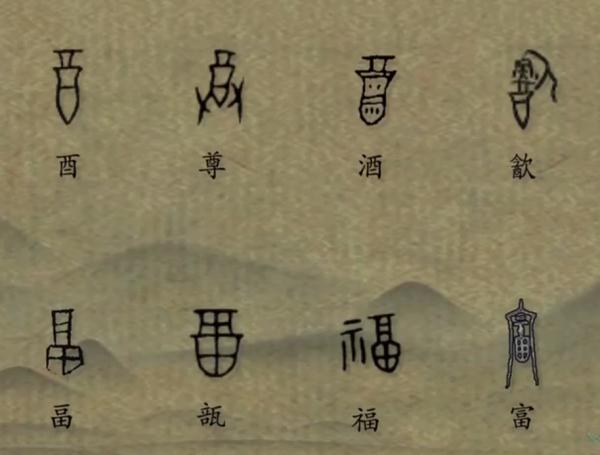 酉 尊 酒 歙
畐 瓿 福 富